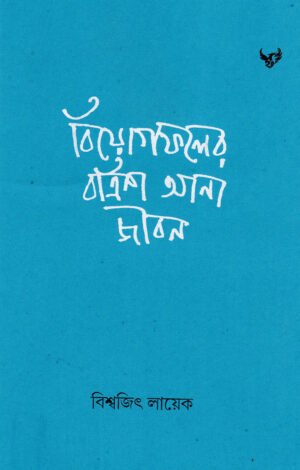 বিয়োগফলের
বত্রিশ আনা
জীবন
বিশ্বজিৎ লায়েক